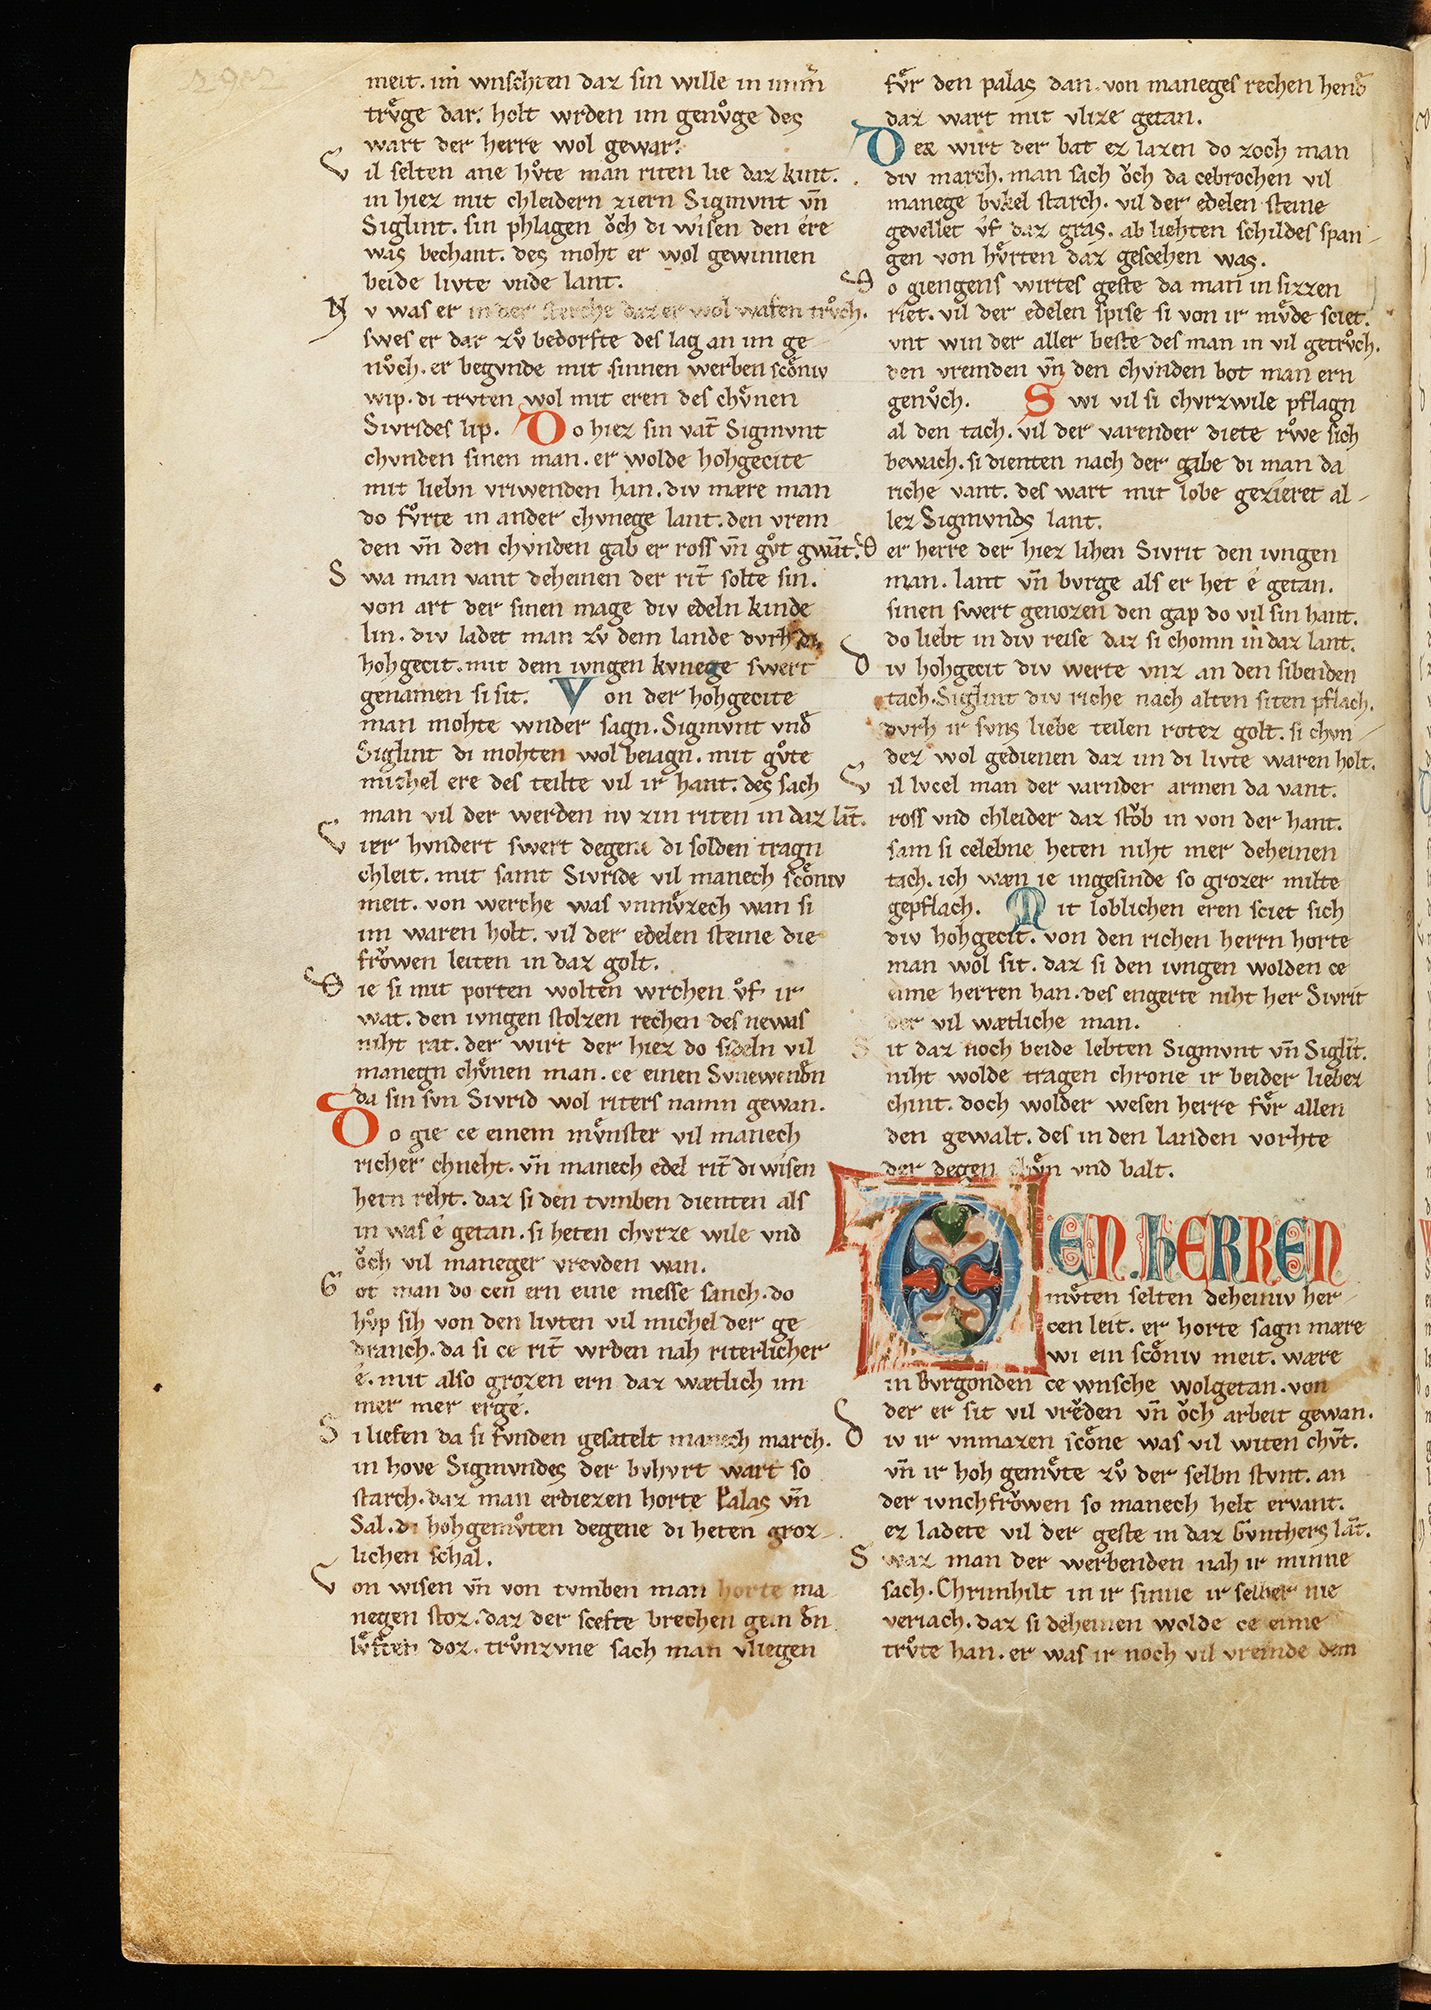 meit. im wnschten daz sin wille in im̄
trv̊ge dar. holt wrden im genv̊ge des
wart der herre wol gewar.
Vil selten ane hv̊te man riten lie daz kint.
in hiez mit chleidern ziern Sigmvnt vn̄
Siglint. sin phlagen ŏch di wisen den ére
was bechant. des moht er wol gewinnen
beide livte vnde lant.
Nv was er in der sterche daz er wol wafen trv̊ch.
swes er dar zv̊ bedorfte des lag an im ge
nv̊ch. er begvnde mit sinnen werben scŏniv
wip. di trvten wol mit eren des chv̊nen
Sivrides lip. Do hiez sin vat̄ Sigmvnt
chvnden sinen man. er wolde hohgecite
mit liebn vriwenden han. div mære man
do fv̊rte in ander chvnege lant. den vrem
den vn̄ den chvnden gab er ross vn̄ gv̊t gwāt.
Swa man vant deheinen der rit̄ solte sin.
von art der sinen mage div edeln kinde
lin. div ladet man zv̊ dem lande dvrh di
hohgecit. mit dem ivngen kvnege swert
genamen si sit. Von der hohgecite
man mohte wnder sagn. Sigmvnt vnd̄
Siglint di mohten wol beiagn. mit gv̊te
michel ere des teilte vil ir hant. des sach
man vil der werden nv zin riten in daz lāt.
Vier hvndert swert degene di solden tragn
chleit. mit samt Sivride vil manech scŏniv
meit. von werche was vnmv̊zech wan si
im waren holt. vil der edelen steine die
frŏwen leiten in daz golt.
Die si mit porten wolten wrchen v̊f ir
wat. den ivngen stolzen rechen des newas
niht rat. der wirt der hiez do sideln vil
manegn chv̊nen man. ce einen Svnewendn̄
da sin svn Sivrid wol riters namn gewan.
Do gie ce einem mv̊nster vil manech
richer chneht. vn̄ manech edel rit̄ di wisen
hetn reht. daz si den tvmben dienten als
in was é getan. si heten chvrze wile vnd
ŏch vil maneger vrevden wan.
Got man do cen ern eine messe sanch. do
hv̊p sih von den livten vil michel der ge
dranch. da si ce rit̄ wrden nah riterlicher
é. mit also grozen ern daz wætlich im
mer mer erge.
Si liefen da si fvnden gesatelt manech march.
in hove Sigmvndes der bvhvrt wart so
starch. daz man erdiezen horte Palas vn̄
Sal. di hohgemv̊ten degene di heten groz-
lichen schal.
Von wisen vn̄ von tvmben man horte ma
negen stoz. daz der scefte brechen gein dn̄
lv̊ften doz. trv̊nzvne sach man vliegen
fv̊r den palas dan. von maneges rechen hend̄
daz wart mit vlize getan.
Der wirt der bat ez lazen do zoch man
div march. man sach ŏch da cebrochen vil
manege bvkel starch. vil der edelen steine
gevellet v̊f daz gras. ab liehten schildes span-
gen von hv̊rten daz gescehen was.
Do giengens wirtes geste da man in sizzen
riet. vil der edelen spise si von ir mv̊de sciet.
vnt win der aller beste des man in vil getrv̊ch.
den vremden vn̄ den chvnden bot man ern
genv̊ch. Swi vil si chvrzwile pflagn
al den tach. vil der varender diete rv̊we sich
bewach. si dienten nach der gabe di man da
riche vant. des wart mit lobe gezieret al-
lez Sigmvnds lant.
Der herre der hiez lihen Sivrit den ivngen
man. lant vn̄ bvrge als er het é getan.
sinen swert genozen den gap do vil sin hant.
do liebt in div reise daz si chomn in daz lant.
Div hohgecit div werte vnz an den sibenden
tach. Siglint div riche nach alten siten pflach.
dvrh ir svns liebe teilen rotez golt. si chvn-
dez wol gedienen daz im di livte waren holt.
Vil lvcel man der varnder armen da vant.
ross vnd chleider daz stŏb in von der hant.
sam si celebne heten niht mer deheinen
tach. ich wæn ie ingesinde so grozer milte
gepflach. Mit loblichen eren sciet sich
div hohgecit. von den richen herrn horte
man wol sit. daz si den ivngen wolden ce
eime herren han. des engerte niht her Sivrit
der vil wætliche man.
Sit daz noch beide lebten Sigmvnt vn̄ Siglīt.
niht wolde tragen chrone ir beider liebez
chint. doch wolder wesen herre fv̊r allen
den gewalt. des in den landen vorhte
der degen chv̊n vnd balt.
DEN. HERREN
mv̊ten selten deheiniv her-
cen leit. er horte sagn mære
wi ein scŏniv meit. wære
in Bvrgonden ce wnsche wolgetan. von
der er sit vil vrĕden vn̄ ŏch arbeit gewan.
Div ir vnmazen scŏne was vil witen chv̄t.
vn̄ ir hoh gemv̊te zv̊ der selbn stvnt. an
der ivnchfrŏwen so manech helt ervant.
ez ladete vil der geste in daz Gv̊nthers lāt.
Swaz man der werbenden nah ir minne
sach. Chrimhilt in ir sinne ir selber nie
veriach. daz si deheinen wolde ce eime
trv̊te han. er was ir noch vil vreinde dem